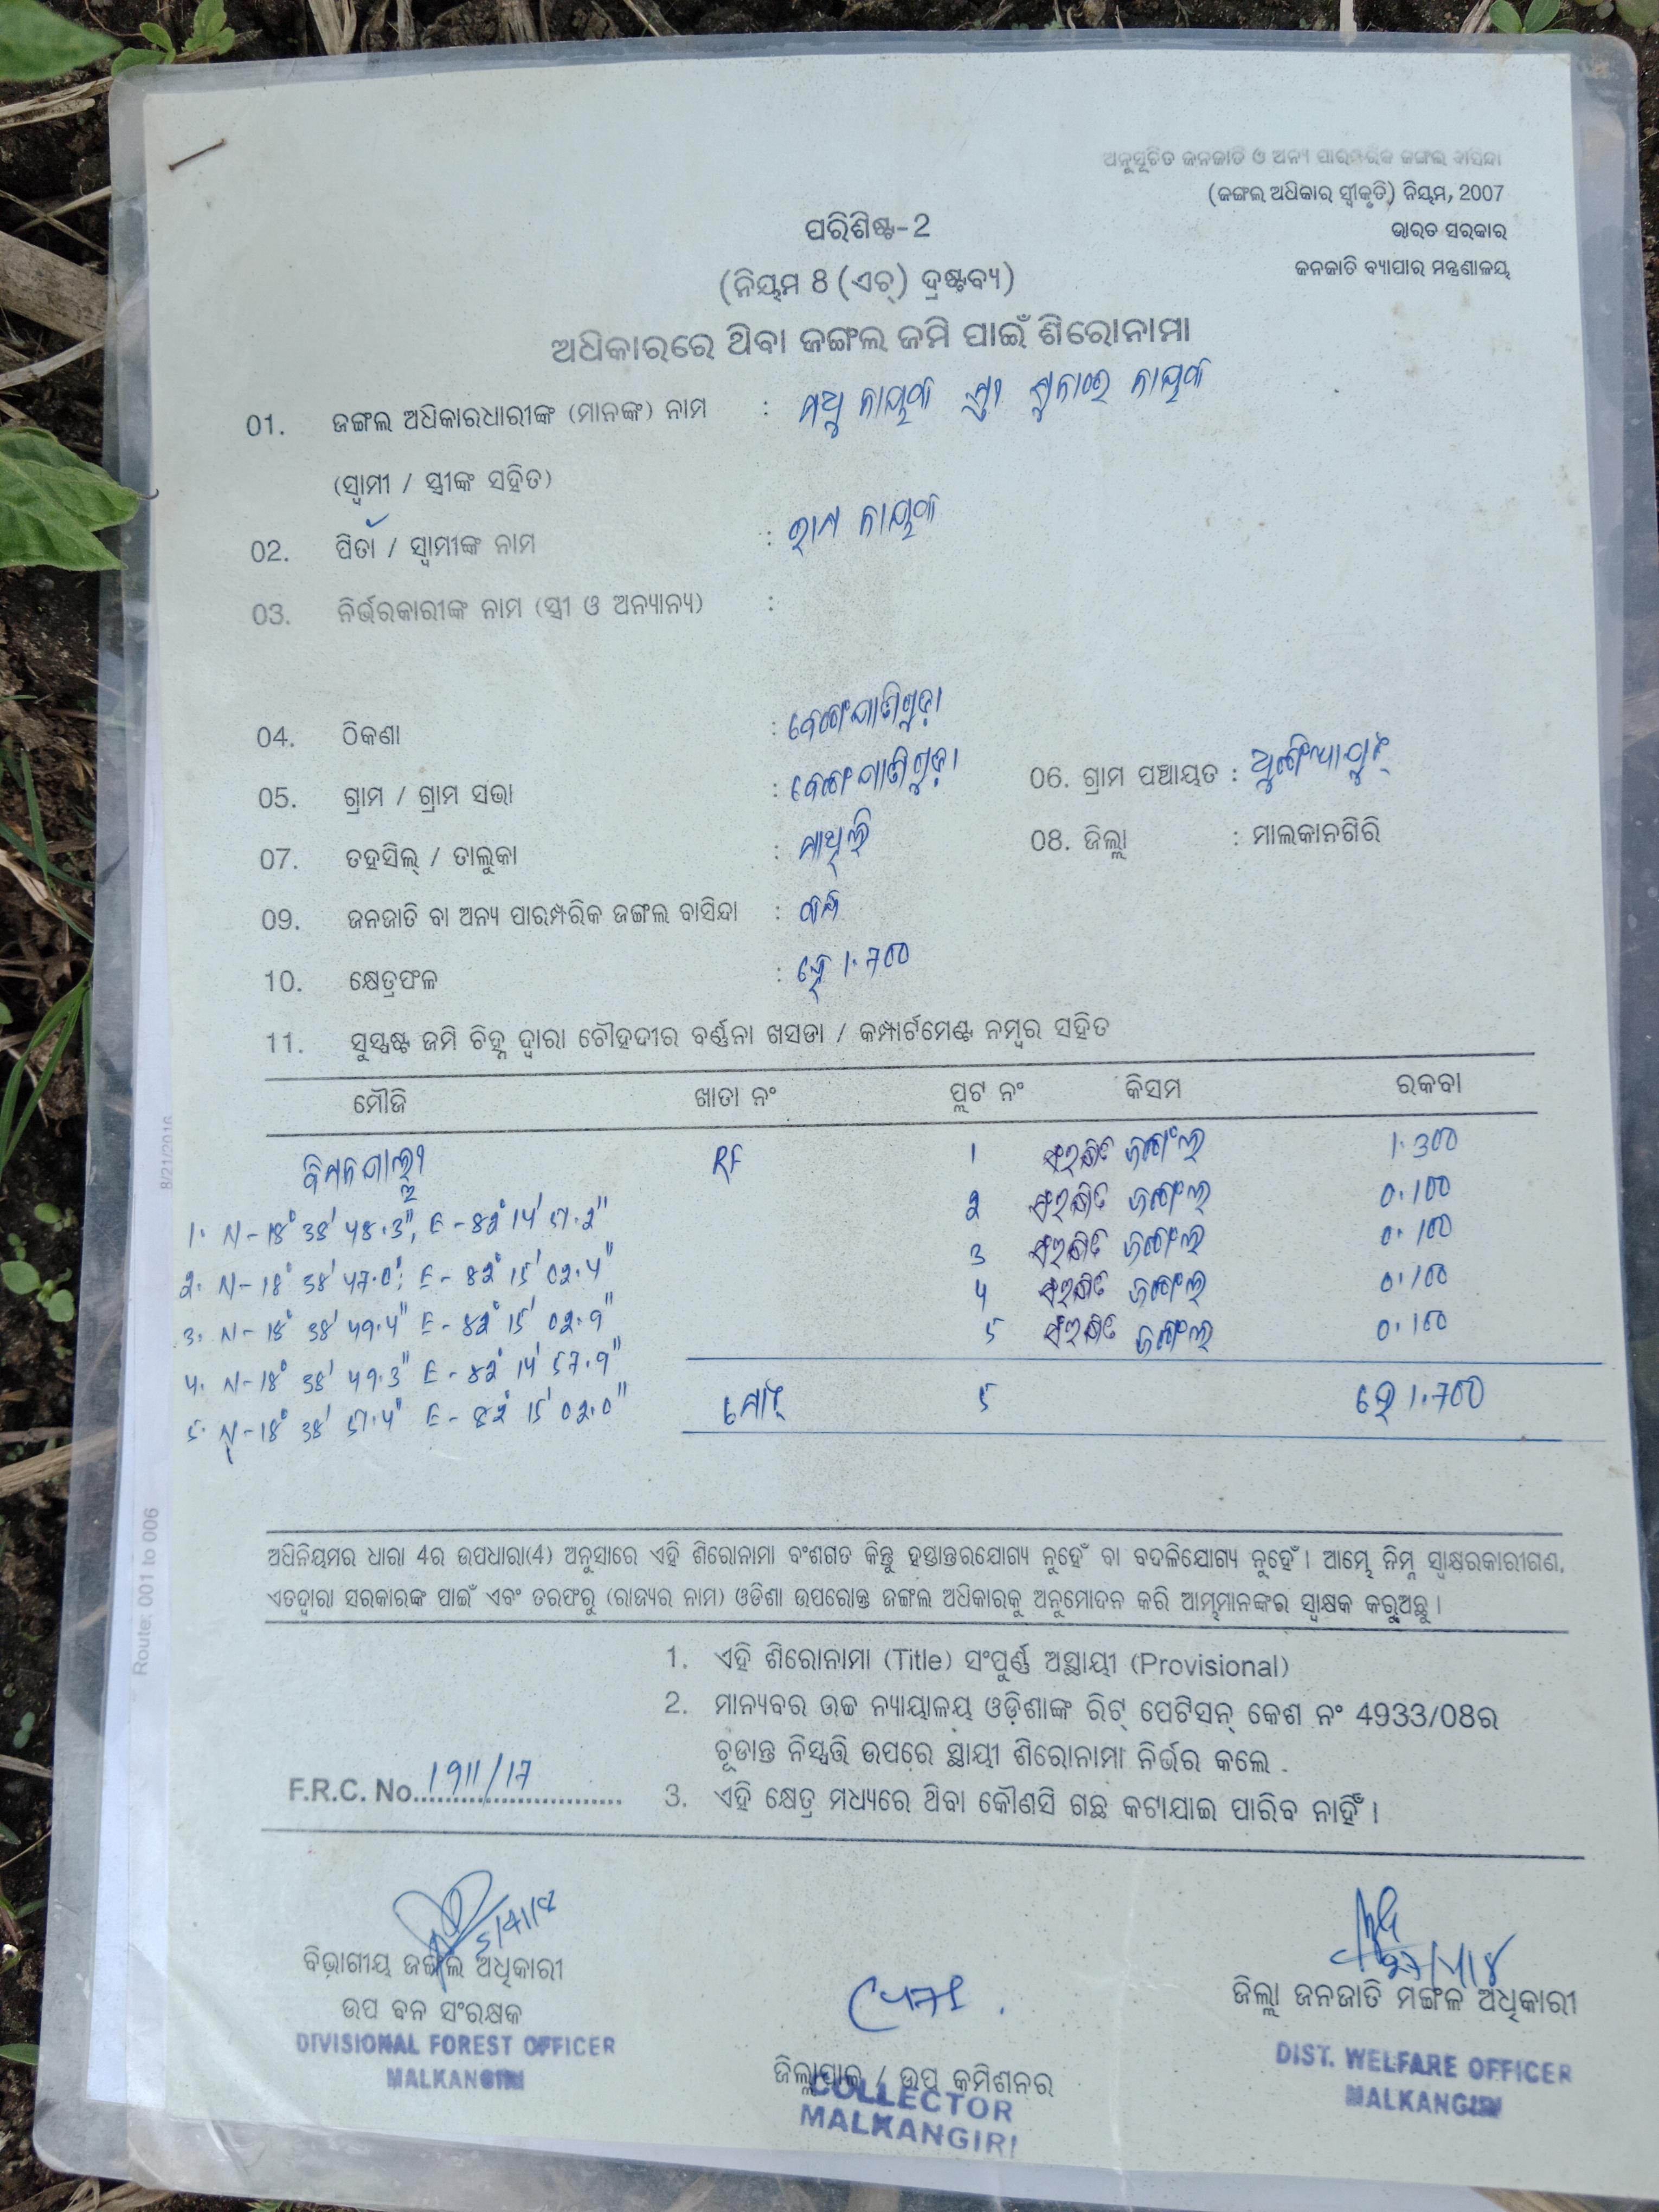 ଅନୁସୂଚିତ ଜନଜାତି ଓ ଅନ୍ୟ ପାରମ୍ପରିକ ଜଙ୍ଗଲ ବାସିନ୍ଦା
(ଜଙ୍ଗଲ ଅଧିକାର ସ୍ୱୀକୃତି) ନିୟମ, 2007
ଭାରତ ସରକାର
ଜନଜାତି ବ୍ୟାପାର ମନ୍ତ୍ରଣାଳୟ
ପରିଶିଷ୍ଟ-2
(ନିୟମ 8 (ଏଚ୍) ଦ୍ରଷ୍ଟବ୍ୟ)
ଅଧିକାରରେ ଥିବା ଜଙ୍ଗଲ ଜମି ପାଇଁ ଶିରୋନାମା
01. ଜଙ୍ଗଲ ଅଧିକାରଧାରୀଙ୍କ (ମାନଙ୍କ) ନାମ : ମଧୁ ନାୟକ ନାୟକ
(ସ୍ୱାମୀ / ସ୍ତ୍ରୀଙ୍କ ସହିତ)
02. ପିତା / ସ୍ୱାମୀଙ୍କ ନାମ : ରାମ ନାୟକ
03. ନିର୍ଭରକାରୀଙ୍କ ନାମ (ସ୍ତ୍ରୀ ଓ ଅନ୍ୟାନ୍ୟ) :
04. ଠିକଣା :
05. ଗ୍ରାମ / ଗ୍ରାମ ସଭା : 06. ଗ୍ରାମ ପଞ୍ଚାୟତ :
07. ତହସିଲ୍ / ତାଲୁକା : ମାଥିଲି 08. ଜିଲ୍ଲା : ମାଲକାନଗିରି
09. ଜନଜାତି ବା ଅନ୍ୟ ପାରମ୍ପରିକ ଜଙ୍ଗଲ ବାସିନ୍ଦା :
10. କ୍ଷେତ୍ରଫଳ : ହେ 1.700
11. ସୁସ୍ପଷ୍ଟ ଜମି ଚିହ୍ନ ଦ୍ୱାରା ଚୌହଦୀର ବର୍ଣ୍ଣନା ଖସଡା / କମ୍ପାର୍ଟମେଣ୍ଟ ନମ୍ବର ସହିତ
ମୌଜି ଖାତା ନଂ ପ୍ଲଟ ନଂ କିସମ ରକବା
RF 1 ସଂରକ୍ଷିତ ଜଙ୍ଗଲ 1.300
1. N-18° 38' 48.3", E-82° 14' 57.2" 2 ସଂରକ୍ଷିତ ଜଙ୍ଗଲ 0.100
2. N-18° 38' 47.0", E-82° 15' 02.4" 3 ସଂରକ୍ଷିତ ଜଙ୍ଗଲ 0.100
3. N-18° 38' 49.4" E-82° 15' 02.9" 4 ସଂରକ୍ଷିତ ଜଙ୍ଗଲ 0.100
4. N-18° 38' 49.3" E-82° 14' 57.9" 5 ସଂରକ୍ଷିତ ଜଙ୍ଗଲ 0.100
5. N-18° 38' 51.4" E-82° 15' 02.0" ମୋଟ୍ 5 ହେ 1.700
ଅଧିନିୟମର ଧାରା 4ର ଉପଧାରା(4) ଅନୁସାରେ ଏହି ଶିରୋନାମା ବଂଶଗତ କିନ୍ତୁ ହସ୍ତାନ୍ତରଯୋଗ୍ୟ ନୁହେଁ ବା ବଦଳିଯୋଗ୍ୟ ନୁହେଁ । ଆମ୍ଭେ ନିମ୍ନ ସ୍ୱାକ୍ଷରକାରୀଗଣ,
ଏତଦ୍ୱାରା ସରକାରଙ୍କ ପାଇଁ ଏବଂ ତରଫରୁ (ରାଜ୍ୟର ନାମ) ଓଡିଶା ଉପରୋକ୍ତ ଜଙ୍ଗଲ ଅଧିକାରକୁ ଅନୁମୋଦନ କରି ଆମ୍ଭମାନଙ୍କର ସ୍ୱାକ୍ଷକ କରୁଅଛୁ ।
1. ଏହି ଶିରୋନାମା (Title) ସଂପୂର୍ଣ୍ଣ ଅସ୍ଥାୟୀ (Provisional)
2. ମାନ୍ୟବର ଉଚ୍ଚ ନ୍ୟାୟାଳୟ ଓଡ଼ିଶାଙ୍କ ରିଟ୍ ପେଟିସନ୍ କେଶ ନଂ 4933/08ର
ଚୂଡାନ୍ତ ନିସ୍ପତ୍ତି ଉପରେ ସ୍ଥାୟୀ ଶିରୋନାମା ନିର୍ଭର କଲେ .
F.R.C. No. 1911/17
3. ଏହି କ୍ଷେତ୍ର ମଧ୍ୟରେ ଥିବା କୌଣସି ଗଛ କଟାଯାଇ ପାରିବ ନାହିଁ ।
27/4/18
ବିଭାଗୀୟ ଜଙ୍ଗଲ ଅଧିକାରୀ
ଉପ ବନ ସଂରକ୍ଷକ
DIVISIONAL FOREST OFFICER
MALKANGIRI
ଜିଲ୍ଲାପାଳ / ଉପ କମିଶନର
COLLECTOR
MALKANGIRI
ଜିଲ୍ଲା ଜନଜାତି ମଙ୍ଗଳ ଅଧିକାରୀ
DIST. WELFARE OFFICER
MALKANGIRI
8/21/2016
Route: 001 to 006